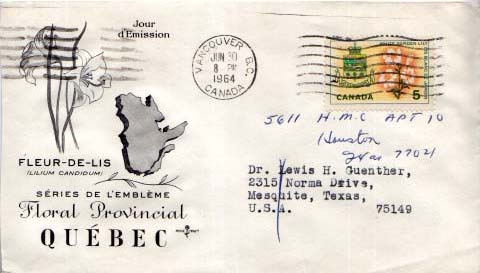 Jour
d'Emission
VANCOUVER B.C.
JUN 30
8 PM
1964
CANADA
WHITE GARDEN LILY
CANADA 5
5611 H.M.C APT 10
Houston
Texas 77021
FLEUR-DE-LIS
(LILIUM CANDIDUM)
SÉRIES DE L'EMBLÈME
Floral Provincial
QUÉBEC
Dr. Lewis H. Guenther,
2315 Norma Drive,
Mesquite, Texas,
U.S.A. 75149